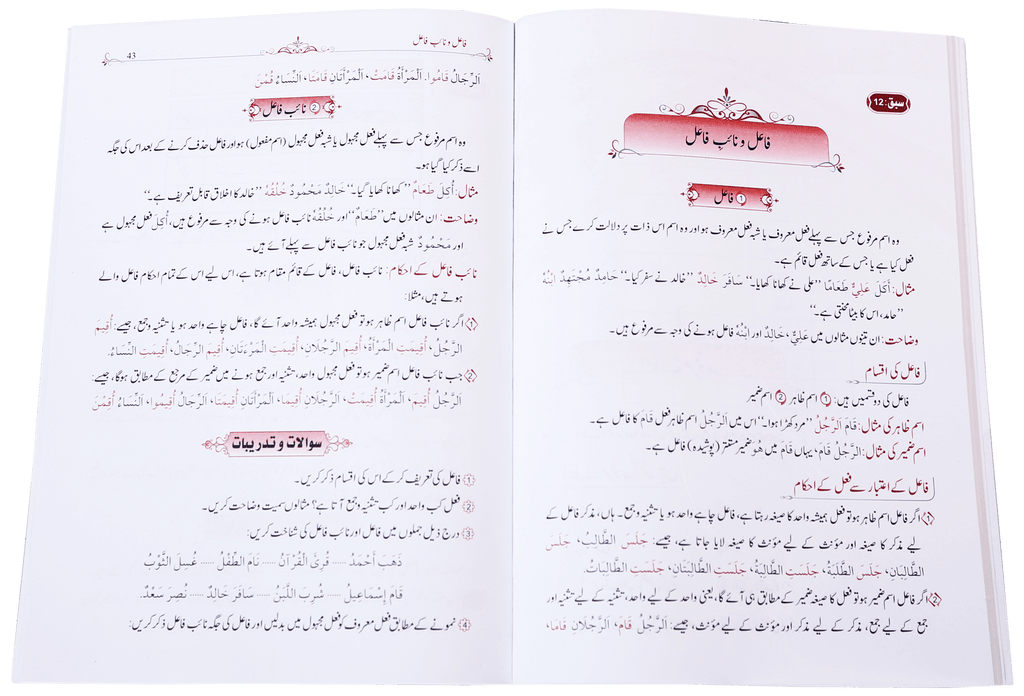 سبق: 12
فاعل و نائب فاعل
① فاعل
وہ اسم مرفوع جس سے پہلے فعل معروف یا شبہ فعل معروف ہو اور وہ اسم اس ذات پر دلالت کرے جس نے
فعل کیا ہے یا جس کے ساتھ فعل قائم ہے۔
مثال: أَكَلَ عَلِيٌّ طَعَامًا ”علی نے کھانا کھایا۔“ سَافَرَ خَالِدٌ ”خالد نے سفر کیا۔“ حَامِدٌ مُجْتَهِدٌ ابْنُهُ
”حامد، اس کا بیٹا محنتی ہے۔“
وضاحت: ان تینوں مثالوں میں عَلِيٌّ، خَالِدٌ اور ابْنُهُ فاعل ہونے کی وجہ سے مرفوع ہیں۔
فاعل کی اقسام
فاعل کی دو قسمیں ہیں: ① اسم ظاہر ② اسم ضمیر
اسم ظاہر کی مثال: قَامَ الرَّجُلُ ”مرد کھڑا ہوا۔“ اس میں الرَّجُلُ اسم ظاہر فعل قَامَ کا فاعل ہے۔
اسم ضمیر کی مثال: الرَّجُلُ قَامَ، یہاں قَامَ میں هُوَ ضمیر مستتر (پوشیدہ) فاعل ہے۔
فاعل کے اعتبار سے فعل کے احکام
① اگر فاعل اسم ظاہر ہو تو فعل ہمیشہ واحد کا صیغہ رہتا ہے، فاعل چاہے واحد ہو یا تثنیہ و جمع۔ ہاں، مذکر فاعل کے
لیے مذکر کا صیغہ اور مؤنث کے لیے مؤنث کا صیغہ لایا جاتا ہے، جیسے: جَلَسَ الطَّالِبُ، جَلَسَ
الطَّالِبَانِ، جَلَسَ الطَّلَبَةُ، جَلَسَتِ الطَّالِبَةُ، جَلَسَتِ الطَّالِبَتَانِ، جَلَسَتِ الطَّالِبَاتُ.
② اگر فاعل اسم ضمیر ہو تو فعل کا صیغہ ضمیر کے مطابق ہی آئے گا، یعنی واحد کے لیے واحد، تثنیہ کے لیے تثنیہ اور
جمع کے لیے جمع، مذکر کے لیے مذکر اور مؤنث کے لیے مؤنث، جیسے: اَلرَّجُلُ قَامَ، اَلرَّجُلَانِ قَامَا،
فاعل و نائب فاعل
43
اَلرِّجَالُ قَامُوا. اَلْمَرْأَةُ قَامَتْ، اَلْمَرْأَتَانِ قَامَتَا، اَلنِّسَاءُ قُمْنَ
② نائب فاعل
وہ اسم مرفوع جس سے پہلے فعل مجہول یا شبہ فعل مجہول (اسم مفعول) ہو اور فاعل حذف کرنے کے بعد اس کی جگہ
اسے ذکر کیا گیا ہو۔
مثال: أُكِلَ طَعَامٌ ”کھانا کھایا گیا۔“ خَالِدٌ مَحْمُودٌ خُلُقُهُ ”خالد کا اخلاق قابل تعریف ہے۔“
وضاحت: ان مثالوں میں ”طَعَامٌ“ اور خُلُقُهُ نائب فاعل ہونے کی وجہ سے مرفوع ہیں، أُكِلَ فعل مجہول ہے
اور مَحْمُودٌ شبہ فعل مجہول جو نائب فاعل سے پہلے آئے ہیں۔
نائب فاعل کے احکام: نائب فاعل، فاعل کے قائم مقام ہوتا ہے، اس لیے اس کے تمام احکام فاعل والے
ہوتے ہیں، مثلاً:
① اگر نائب فاعل اسم ظاہر ہو تو فعل مجہول ہمیشہ واحد آئے گا، فاعل چاہے واحد ہو یا تثنیہ و جمع، جیسے: أُقِيمَ
الرَّجُلُ، أُقِيمَتِ الْمَرْأَةُ، أُقِيمَ الرَّجُلَانِ، أُقِيمَتِ الْمَرْءَتَانِ، أُقِيمَ الرِّجَالُ، أُقِيمَتِ النِّسَاءُ.
② جب نائب فاعل اسم ضمیر ہو تو فعل مجہول واحد، تثنیہ اور جمع ہونے میں ضمیر کے مرجع کے مطابق ہوگا، جیسے:
اَلرَّجُلُ أُقِيمَ، اَلْمَرْأَةُ أُقِيمَتْ، اَلرَّجُلَانِ أُقِيمَا، اَلْمَرْأَتَانِ أُقِيمَتَا، اَلرِّجَالُ أُقِيمُوا، اَلنِّسَاءُ أُقِمْنَ
سوالات و تدریبات
① فاعل کی تعریف کر کے اس کی اقسام ذکر کریں۔
② فعل کب واحد اور کب تثنیہ و جمع آتا ہے؟ مثالوں سمیت وضاحت کریں۔
③ درج ذیل جملوں میں فاعل اور نائب فاعل کی شناخت کریں:
ذَهَبَ أَحْمَدُ ...... قُرِئَ الْقُرْآنُ ...... نَامَ الطِّفْلُ ...... غُسِلَ الثَّوْبُ
قَامَ إِسْمَاعِيلُ ...... شُرِبَ اللَّبَنُ ...... سَافَرَ خَالِدٌ ...... نُصِرَ سَعْدٌ.
④ نمونے کے مطابق فعل معروف کو فعل مجہول میں بدلیں اور فاعل کی جگہ نائب فاعل ذکر کریں: